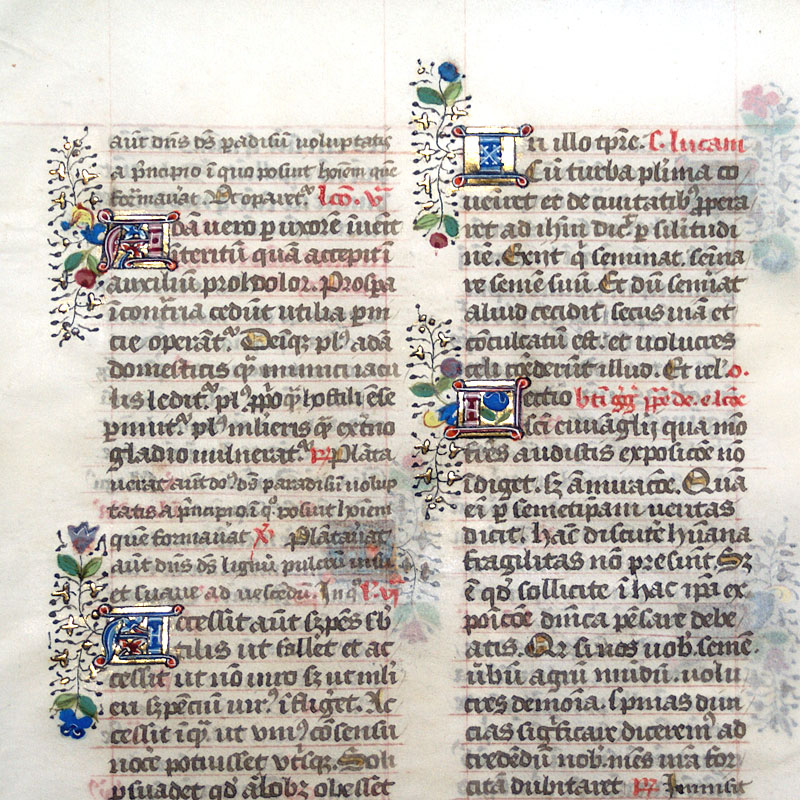 aut dns ds padisu voluptatis
a pncipio i quo posuit hoiem que
formauat. Et oparet. lco. v
Ada vero p uxore inuēit
iteritu quā accepit i
auxiliū proh dolor. Prospa
i contria cedūt utilia pni
cie operāt. Deiqz pl adā
domesticis qz inimici iacu
lis ledit. pl pprio qz hostili ēse
pimit. pl mlieris qz extno
gladio vulnerat. Plāta
uerat aut ds paradisū volup
tatis a pncipio i qo posuit hoiem
quē formauat Plātauat
aut dns ds lignū pulcrū uisu
et suaue ad vescēdū. l. vi
Accessit aut szpēs sb
tilis ut fallet et ac
cessit ut nō viro sz ut mli
eri szpētiū vir ifliget. Ac
cessit iqz ut vni cōsensu
noce potuisset utsqz. Soli
psuadet qd ābobz obesset
In illo tpre. S. lucam
Cū turba plima co
ueiret et de ciuitatibz ppera
ret ad ihm dic p silitudi
nē. Exiit q seminat. semia
re semē suū. Et dū semiat
aliud cecidit secus uiā et
cōculcatū est. et volucres
celi comederūt illud. Et rel. o.
Lectio bti ggr ppe de. e. lcoe
Lsci euuāglij quā mo
fres audistis expositoe nō
idiget. sz āmuracōe. Quā
ei p semetipam veritas
dicit. hāc discute hūana
fragilitas nō presuit. Sz
ē qd sollicite i hac ipa ex
poicoe dnica pēsare debe
atis. Qr si nos uob. semē
ubū agrū mūdū. volu
cres demoia. spinas diui
cias sigficare dicerem ad
credēdū nob. mēs ura for
cita dubitaret Immisit